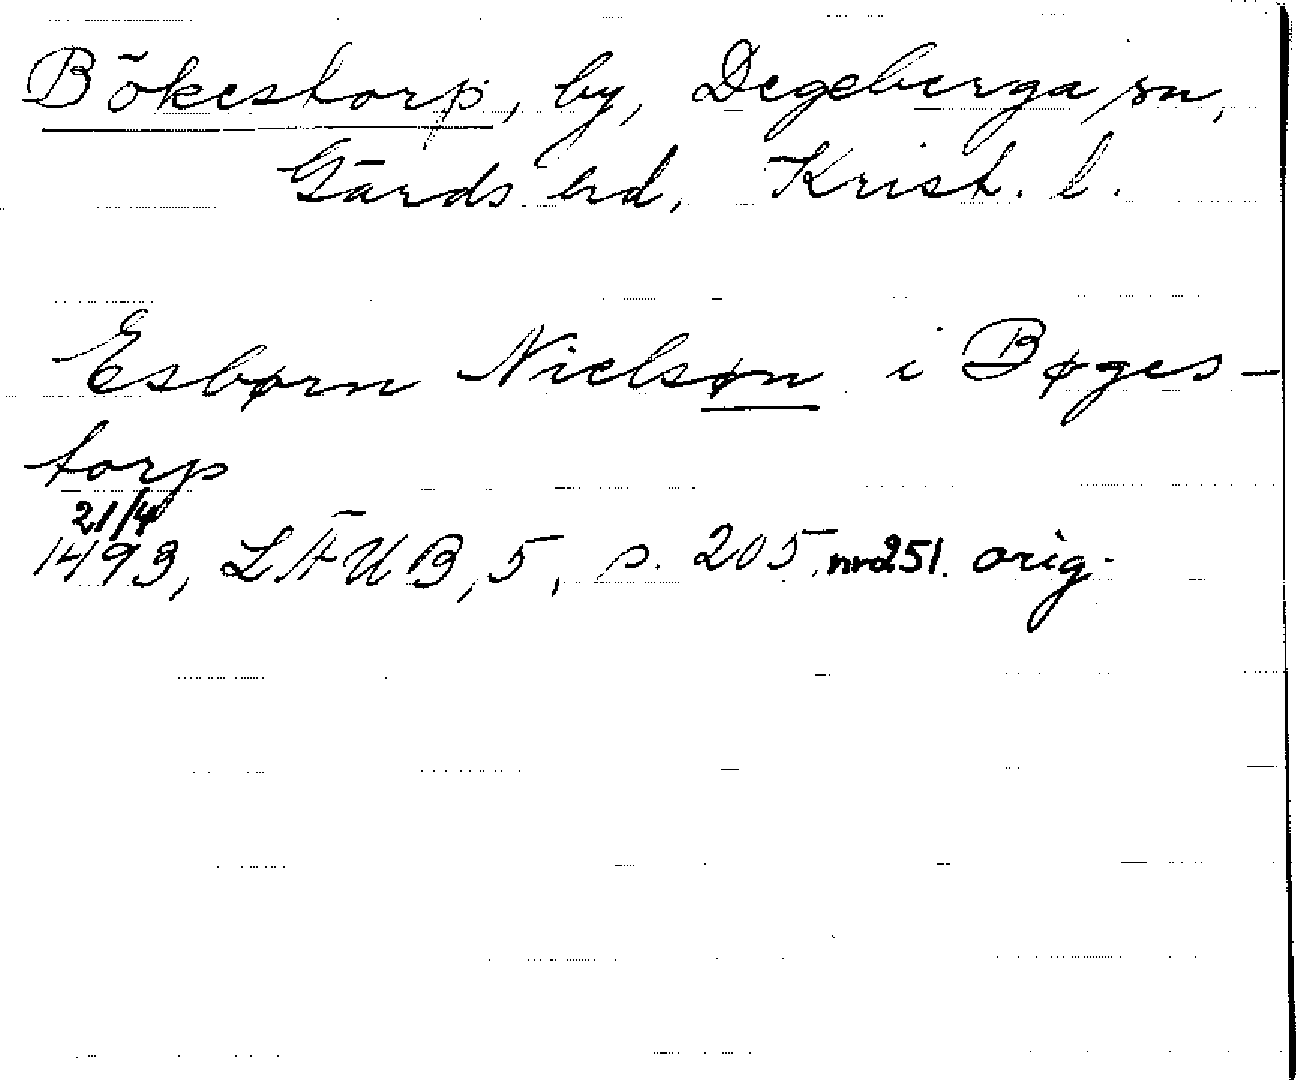 Bökestorp, by, Degeberga sn,
Gärds hd, Krist. l.
Esbørn Nielsøn i Bøges-
torp
21/4
1493, LÄUB, 5, s. 205, nr 251. orig.